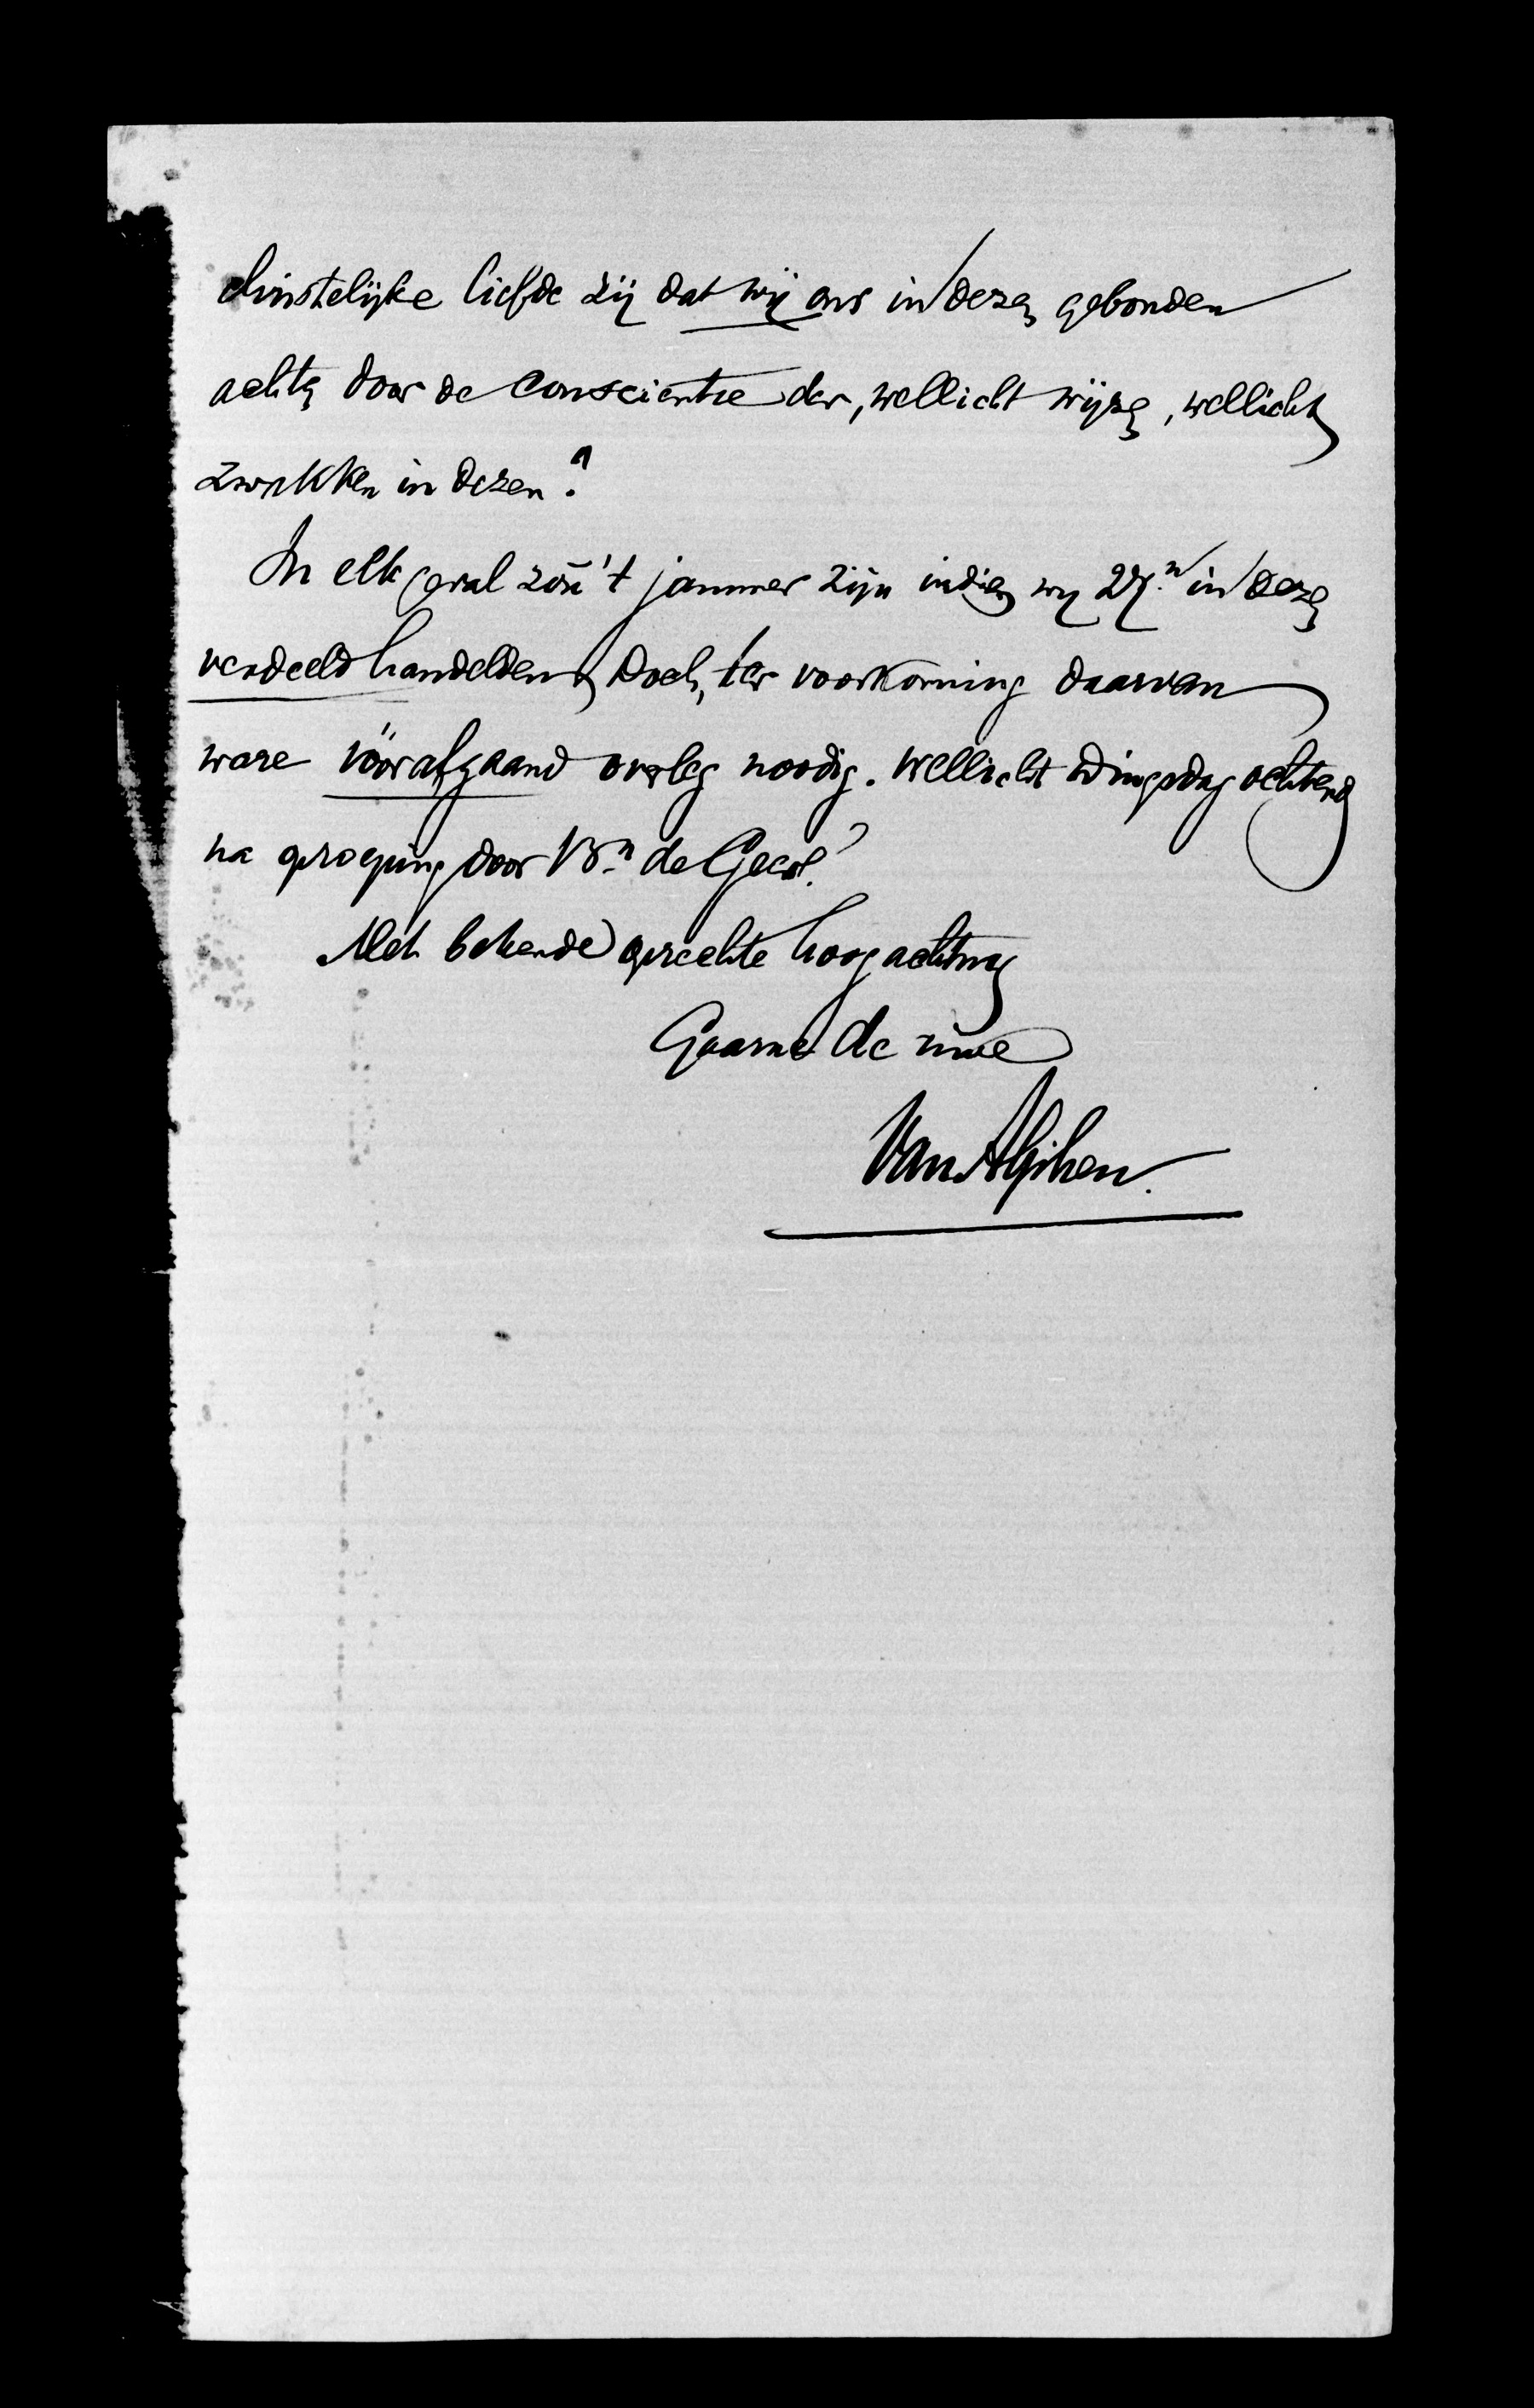 christelijke liefde zij dat wij ons in dezen gebonden
achten door de conscientie der, wellicht wijzen, wellicht
zwakken in dezen?
In elk geval zou 't jammer zijn indien wij in dezen
verdeeld handelden, Doch, ter voorkoming daarvan
ware vóórafgaand overleg noodig. Wellicht Dingsdag ochtend
na oproeping door Bn de Geer?
Met bekende oprechte hoogachting
Gaarne de uwe
Van Alphen.